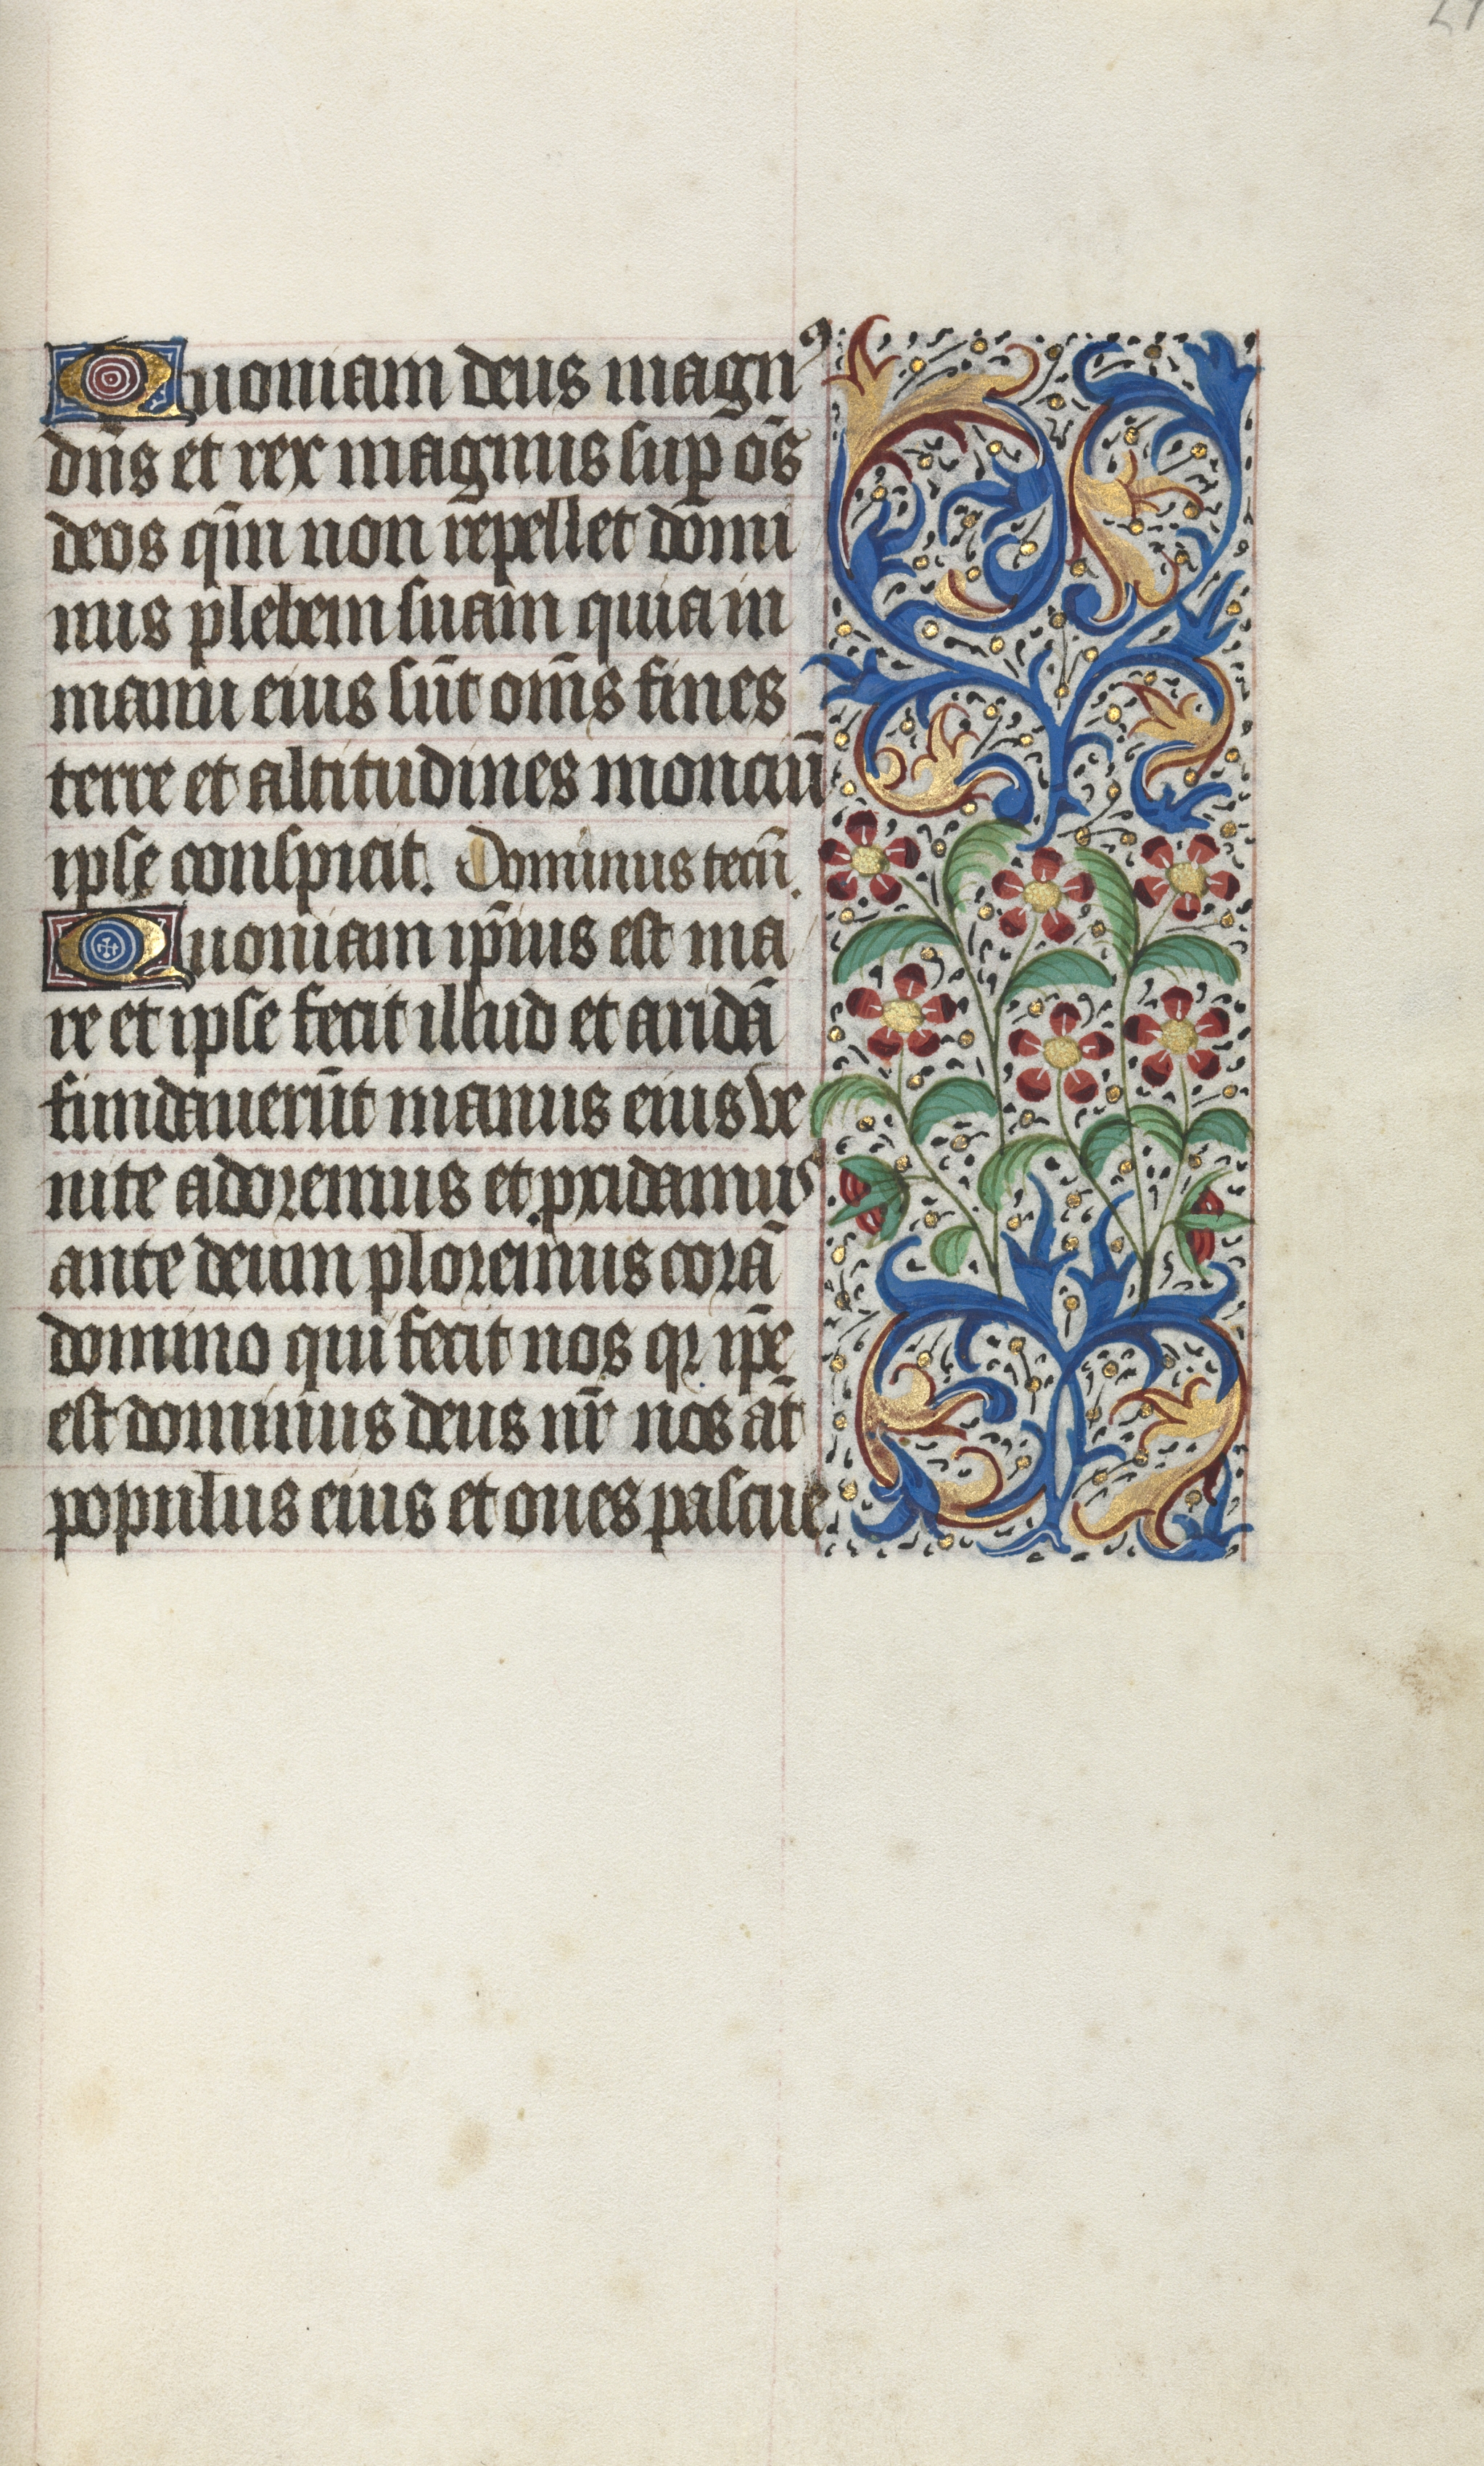 Quoniam deus magnꝰ
dn̄s et rex magnus suꝑ om̄s
deos qm̄ non repellet domi
nus plebem suam quia in
manu eius sūt om̄s fines
terre et altitudines monciū
ipse conspicit. Dominus tecū.
Quoniam ip̄ius est ma
re et ipse fecit illud et aridā
fundauerūt manus eius ve
nite adoremus et pcidamus
ante deum ploremus corā
domino qui fecit nos qꝛ ip̄e
est dominus deus nr̄ nos at̄
populus eius et oues pascue